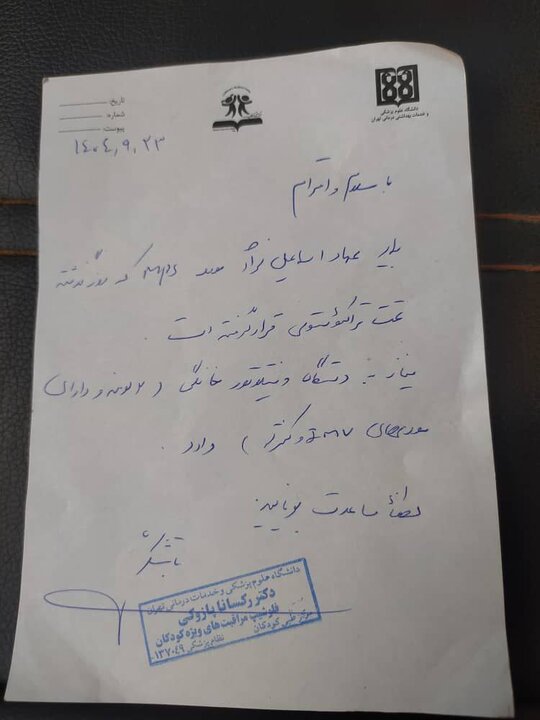 دانشگاه علوم پزشکی
و خدمات بهداشتی درمانی تهران
تاریخ:
شماره:
پیوست:
۱۴۰۴,۹,۲۳
با سلام و احترام
بیمار عماد اسماعیل نژاد مورد MPS که روز گذشته
تحت تراکئوستومی قرار گرفته است.
نیاز به دستگاه ونتیلاتور خانگی (۲ لوله و دارای
مودهای SIMV و کنترله) دارد.
لطفاً مساعدت بفرمایید
با تشکر
دانشگاه علوم پزشکی و خدمات درمانی تهران
دکتر رکسانا پازوکی
فلوشیپ مراقبت‌های ویژه کودکان
مرکز طبی کودکان نظام پزشکی ۱۳۷۰۴۹